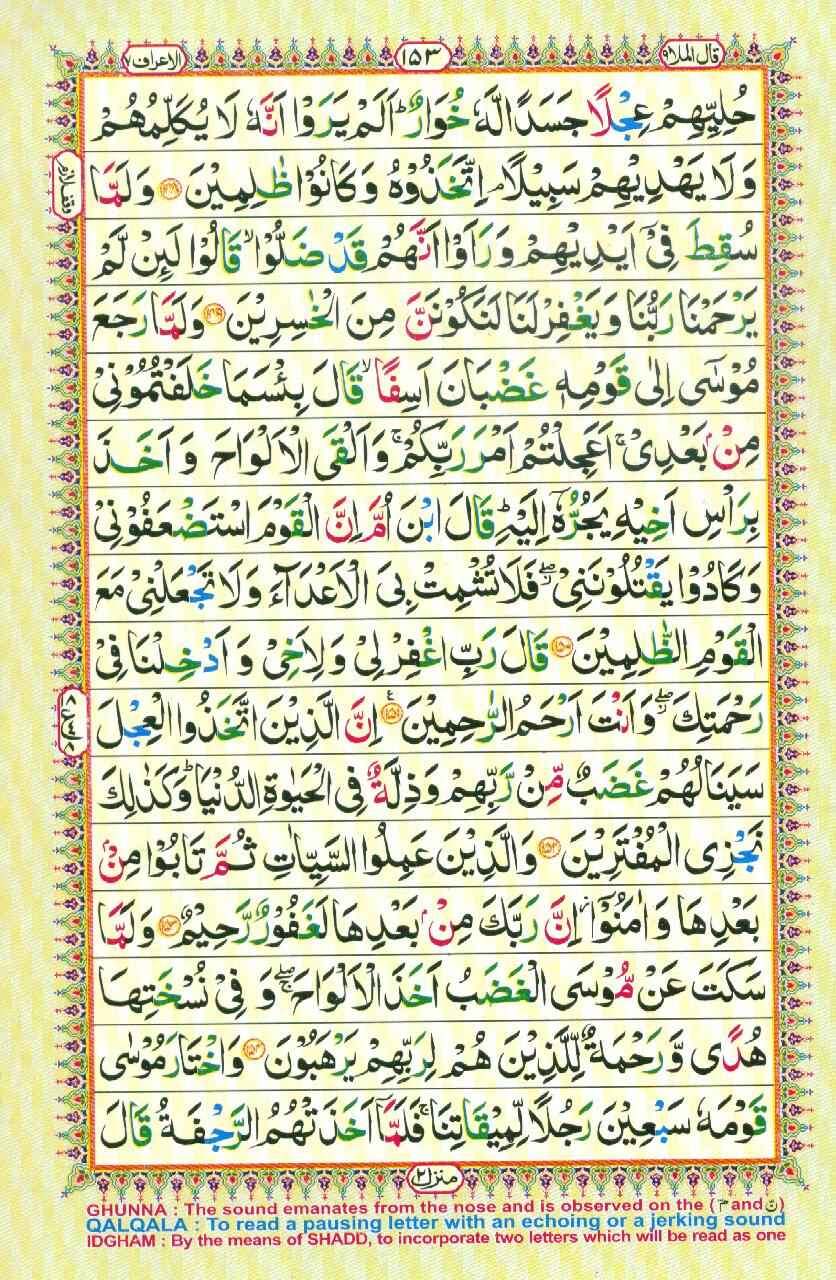 الاعراف ٧
١٥٣
قال الملا ٩
حُلِيِّهِمْ عِجْلًا جَسَدًا لَّهٗ خُوَارٌ ؕ اَلَمْ يَرَوْا اَنَّهٗ لَا يُكَلِّمُهُمْ
وَلَا يَهْدِيْهِمْ سَبِيْلًا ۘ اِتَّخَذُوْهُ وَكَانُوْا ظٰلِمِيْنَ ﴿۱۴۸﴾ وَلَمَّا
سُقِطَ فِيْۤ اَيْدِيْهِمْ وَرَاَوْا اَنَّهُمْ قَدْ ضَلُّوْا ۙ قَالُوْا لَئِنْ لَّمْ
يَرْحَمْنَا رَبُّنَا وَيَغْفِرْ لَنَا لَنَكُوْنَنَّ مِنَ الْخٰسِرِيْنَ ﴿۱۴۹﴾ وَلَمَّا رَجَعَ
مُوْسٰۤى اِلٰى قَوْمِهٖ غَضْبَانَ اَسِفًا ۙ قَالَ بِئْسَمَا خَلَفْتُمُوْنِيْ
مِنْۢ بَعْدِيْ ۚ اَعَجِلْتُمْ اَمْرَ رَبِّكُمْ ۚ وَاَلْقَى الْاَلْوَاحَ وَ اَخَذَ
بِرَاْسِ اَخِيْهِ يَجُرُّهٗۤ اِلَيْهِ ؕ قَالَ ابْنَ اُمَّ اِنَّ الْقَوْمَ اسْتَضْعَفُوْنِيْ
وَكَادُوْا يَقْتُلُوْنَنِيْ ۖ فَلَا تُشْمِتْ بِيَ الْاَعْدَآءَ وَلَا تَجْعَلْنِيْ مَعَ
الْقَوْمِ الظّٰلِمِيْنَ ﴿۱۵۰﴾ قَالَ رَبِّ اغْفِرْ لِيْ وَلِاَخِيْ وَ اَدْخِلْنَا فِيْ
رَحْمَتِكَ ۖ وَاَنْتَ اَرْحَمُ الرّٰحِمِيْنَ ﴿۱۵۱﴾ ع اِنَّ الَّذِيْنَ اتَّخَذُوا الْعِجْلَ
سَيَنَالُهُمْ غَضَبٌ مِّنْ رَّبِّهِمْ وَذِلَّةٌ فِي الْحَيٰوةِ الدُّنْيَا ؕ وَكَذٰلِكَ
نَجْزِي الْمُفْتَرِيْنَ ﴿۱۵۲﴾ وَالَّذِيْنَ عَمِلُوا السَّيِّاٰتِ ثُمَّ تَابُوْا مِنْۢ
بَعْدِهَا وَ اٰمَنُوْۤا ۫ اِنَّ رَبَّكَ مِنْۢ بَعْدِهَا لَغَفُوْرٌ رَّحِيْمٌ ﴿۱۵۳﴾ وَلَمَّا
سَكَتَ عَنْ مُّوْسَى الْغَضَبُ اَخَذَ الْاَلْوَاحَ ۖۚ وَ فِيْ نُسْخَتِهَا
هُدًى وَّ رَحْمَةٌ لِّلَّذِيْنَ هُمْ لِرَبِّهِمْ يَرْهَبُوْنَ ﴿۱۵۴﴾ وَاخْتَارَ مُوْسٰى
قَوْمَهٗ سَبْعِيْنَ رَجُلًا لِّمِيْقَاتِنَا ۚ فَلَمَّاۤ اَخَذَتْهُمُ الرَّجْفَةُ قَالَ
منزل ٢
GHUNNA : The sound emanates from the nose and is observed on the (م and ن)
QALQALA : To read a pausing letter with an echoing or a jerking sound
IDGHAM : By the means of SHADD, to incorporate two letters which will be read as one